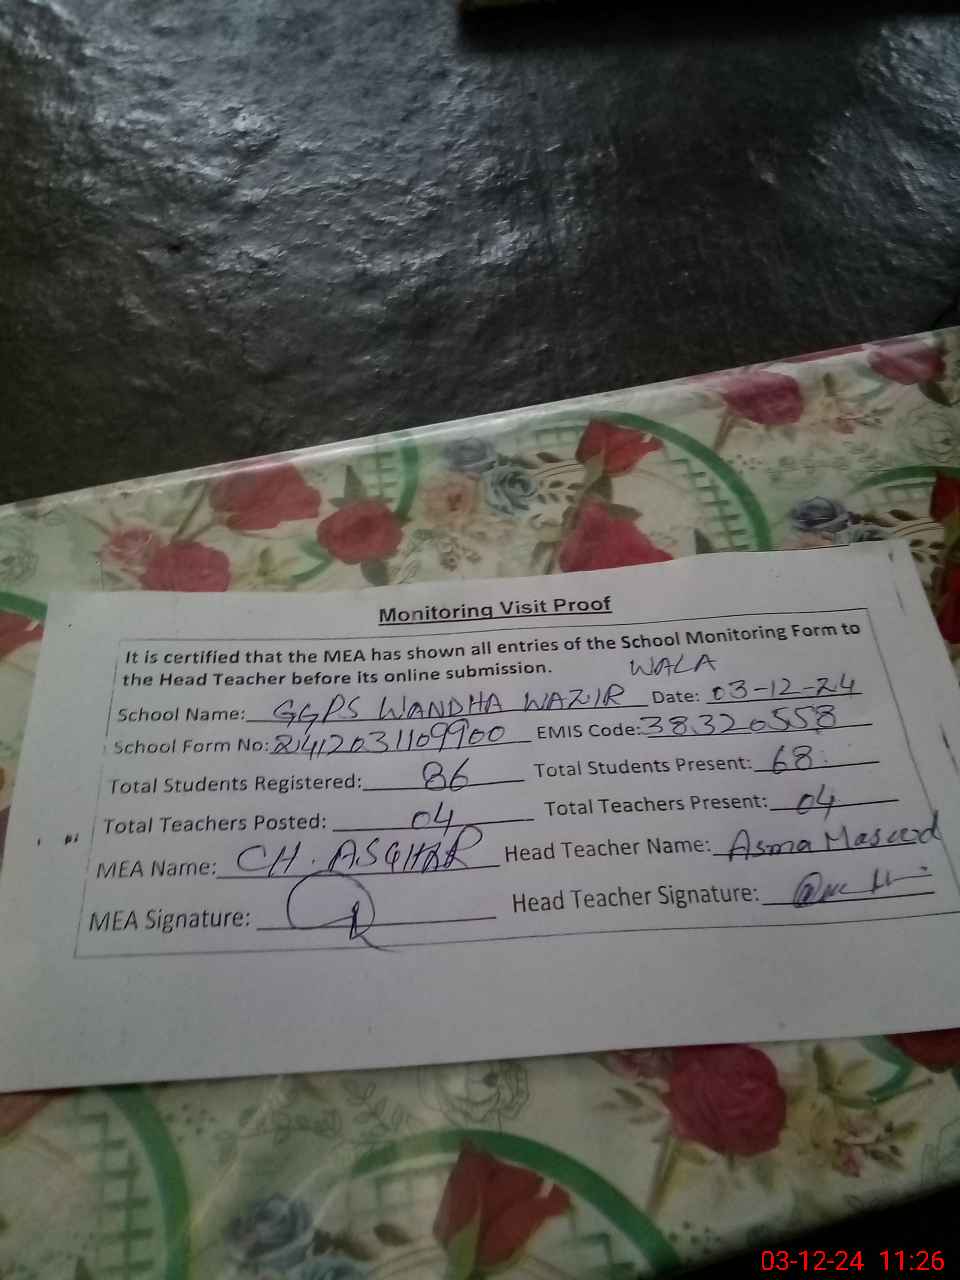 Monitoring Visit Proof
It is certified that the MEA has shown all entries of the School Monitoring Form to
the Head Teacher before its online submission.
WALA
School Name: GGPS WANDHA WAZIR Date: 03-12-24
School Form No: 2412031109900 EMIS Code: 38320558
Total Students Registered: 86 Total Students Present: 68
Total Teachers Posted: 04 Total Teachers Present: 04
MEA Name: CH. ASGHAR Head Teacher Name: Asma Masood
MEA Signature: Head Teacher Signature:
03-12-24 11:26